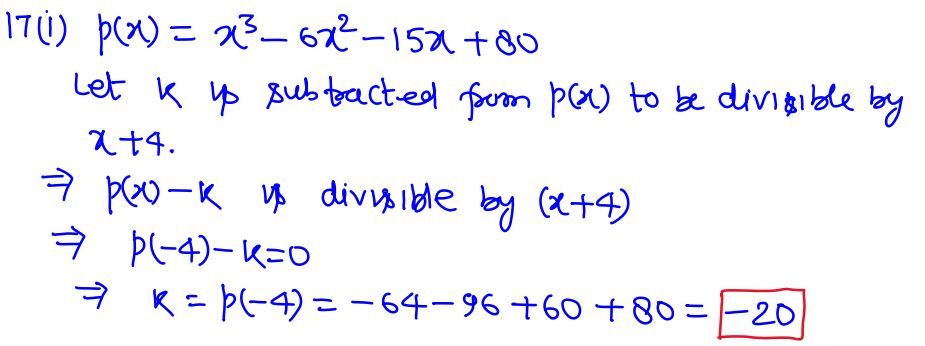 17(i) p(x) = x³ - 6x² - 15x + 80
Let k is subtracted from p(x) to be divisible by
x+4.
⇒ p(x) - k is divisible by (x+4)
⇒ p(-4) - k = 0
⇒ k = p(-4) = -64 - 96 + 60 + 80 = -20